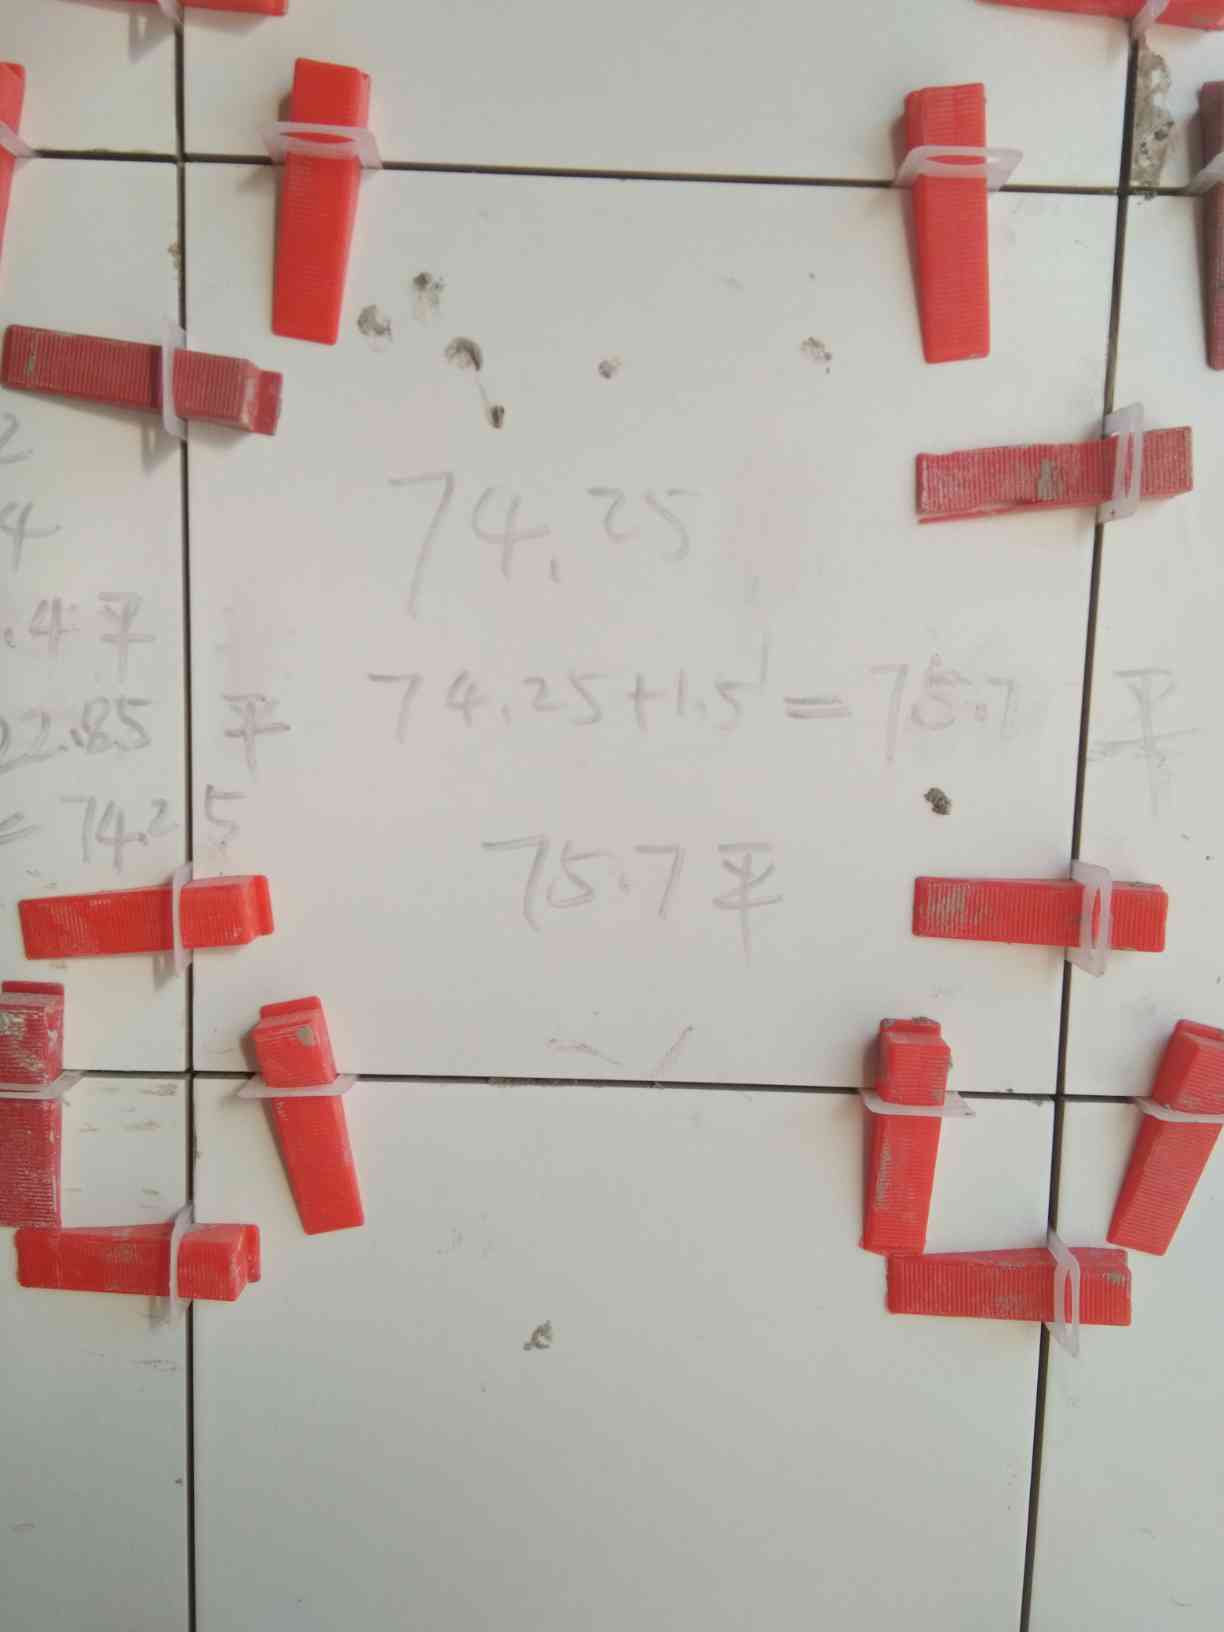 2
4
.4平
22.85 平
= 74.25
74.25
74.25+1.5=75.7 平
75.7平